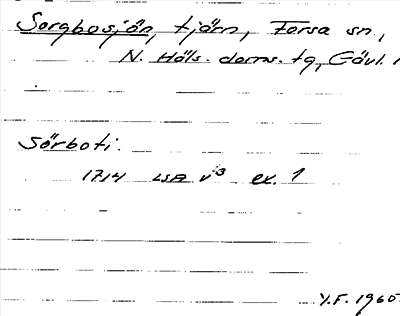 Sorgbosjön, tjärn, Forsa sn,
N. Häls. doms. tg, Gävl. l
Sörboti.
1714 LSA v3 ex. 1
Y.F. 1960